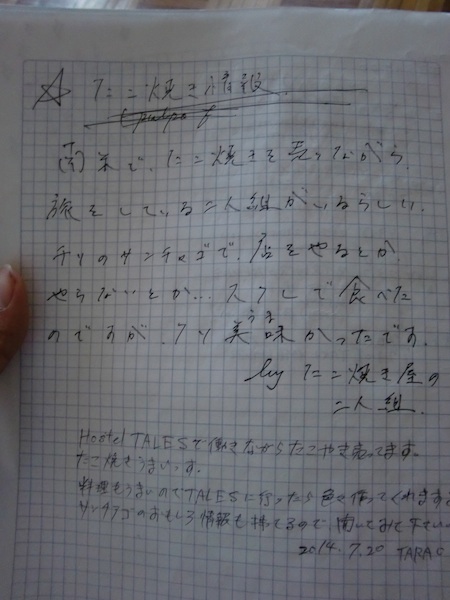 ☆ たこ焼き情報
(pulpo
南米で、たこ焼きを売りながら、
旅をしている二人組がいるらしい
チリのサンチャゴで、店をやるとか
やらないとか… スクレで食べた
のですが、クソ美味かったです。
うま
by たこ焼き屋の
二人組.
Hostel TALESで働きながらたこやき売ってます。
たこ焼きうまいっす。
料理もうまいのでTALESに行ったら色々作ってくれます
サンチアゴのおもしろ情報も持てるので聞いてみて下さい
2014.7.20 TARAO